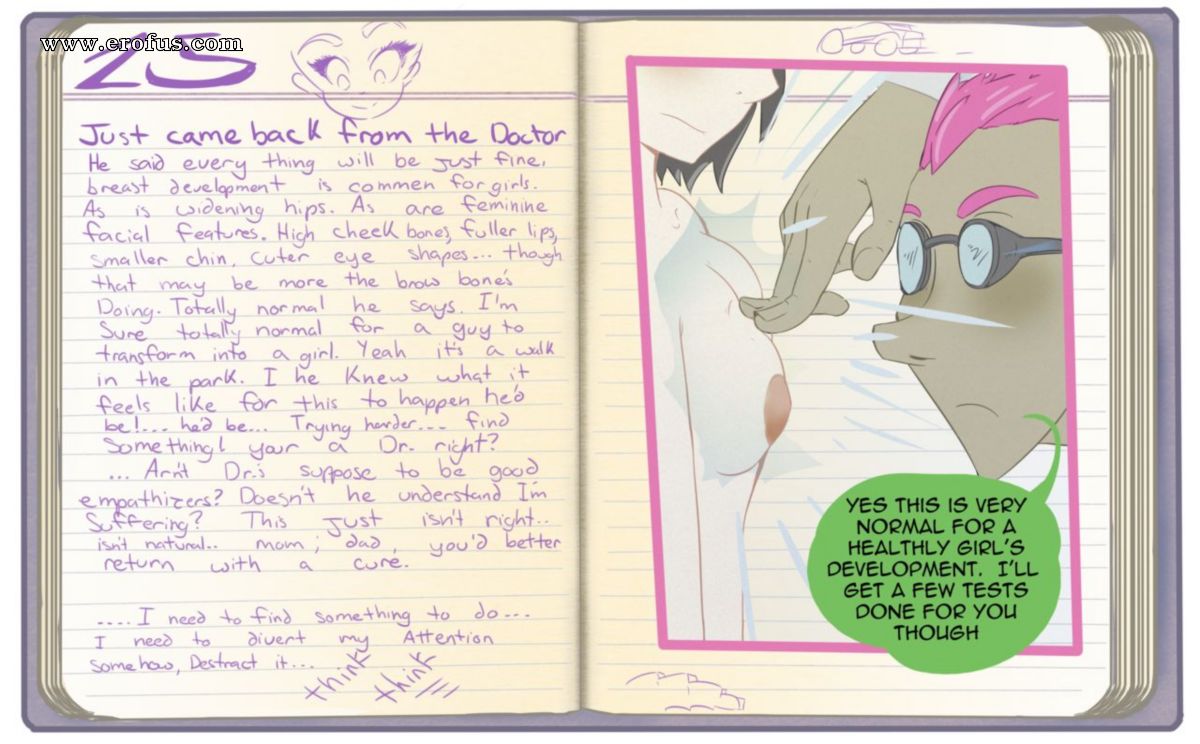 www.erofus.com
25
Just came back from the Doctor
He said every thing will be just fine,
breast development is commen for girls.
As is widening hips. As are feminine
facial features. High cheek bones, fuller lips,
smaller chin, cuter eye shapes... though
that may be more the brow bone's
Doing. Totally normal he says. I'm
Sure totally normal for a guy to
transform into a girl. Yeah it's a walk
in the park. I he Knew what it
feels like for this to happen he'd
be!... he'd be... Trying harder... find
Something! your a Dr. right?
... Arn't Dr.'s suppose to be good
empathizers? Doesn't he understand I'm
Suffering? This Just isn't right..
isn't natural.. mom, dad, you'd better
return with a cure.
.... I need to find something to do...
I need to divert my Attention
Somehow, Destract it...
think
think
YES THIS IS VERY
NORMAL FOR A
HEALTHLY GIRL'S
DEVELOPMENT. I'LL
GET A FEW TESTS
DONE FOR YOU
THOUGH